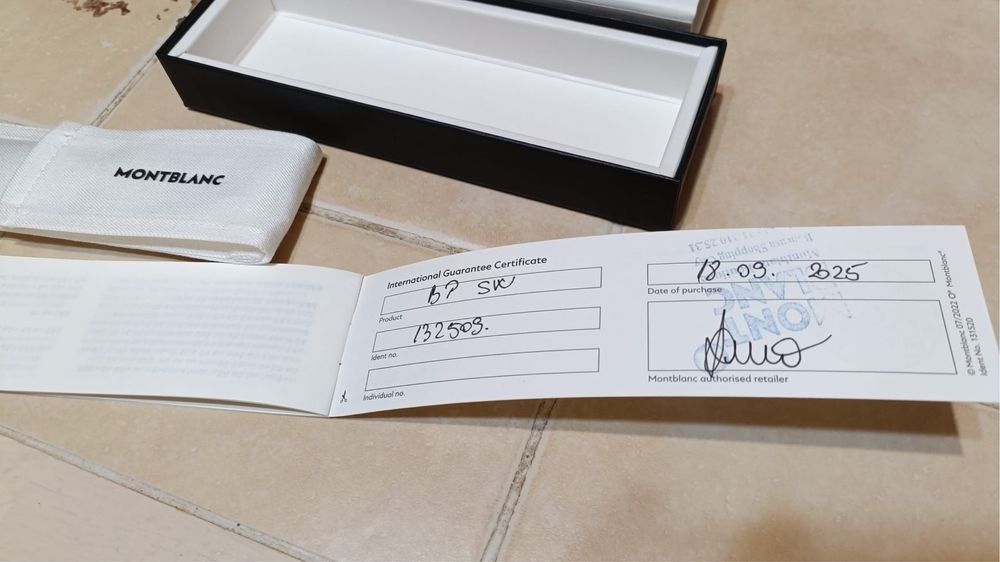 MONTBLANC
International Guarantee Certificate
BP SW
Product
132509.
Ident no.
Individual no.
18 09. 2025
Date of purchase
MONT
BLANC
Montblanc authorised retailer
© Montblanc 07/2022 Montblanc®
Ident No. 131520